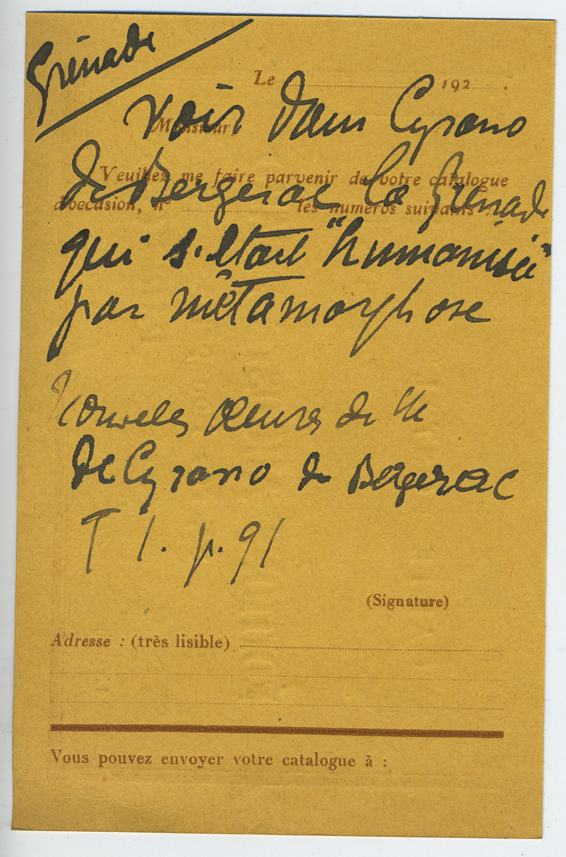 Grenade
Le 192
Voir dans Cyrano
Monsieur,
Veuillez me faire parvenir de votre catalogue
de Bergerac la Grenade
d'occasion, n° les numéros suivants :
qui s'était "humanisée"
par métamorphose
Nouvelles œuvres de Mr
De Cyrano de Bergerac
T 1. p. 91
(Signature)
Adresse : (très lisible)
Vous pouvez envoyer votre catalogue à :